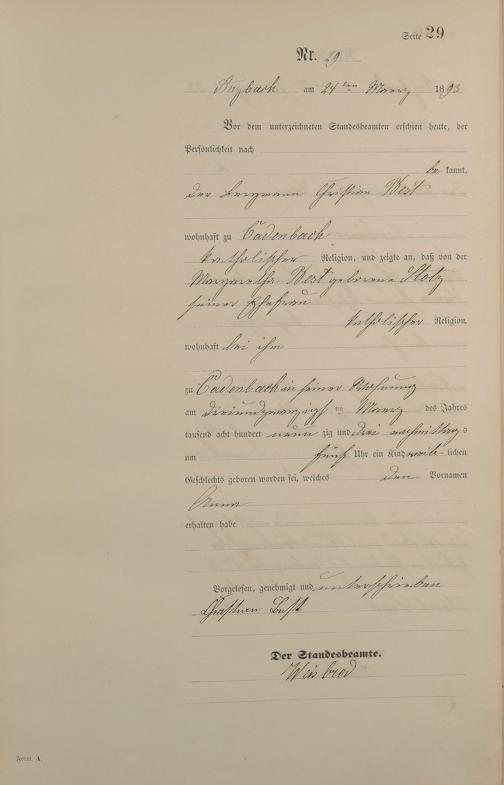 Seite 29
Nr. 29
Arzbach am 24ten Maerz 1893
Vor dem unterzeichneten Standesbeamten erschien heute, der
Persönlichkeit nach
be kannt,
der Bergmann Christian Best
wohnhaft zu Cadenbach
katholischer Religion, und zeigte an, daß von der
Margaretha Best geborene Stotz
seiner Ehefrau
katholischer Religion,
wohnhaft bei ihm
zu Cadenbach in seiner Wohnung
am dreiundzwanzigsten Maerz des Jahres
tausend acht hundert neun zig und drei nachmittags
um fünf Uhr ein Kind weib-lichen
Geschlechts geboren worden sei, welches den Vornamen
Anna
erhalten habe
Vorgelesen, genehmigt und unterschrieben
Christian Best
Der Standesbeamte.
Weisbrod
Form. A.